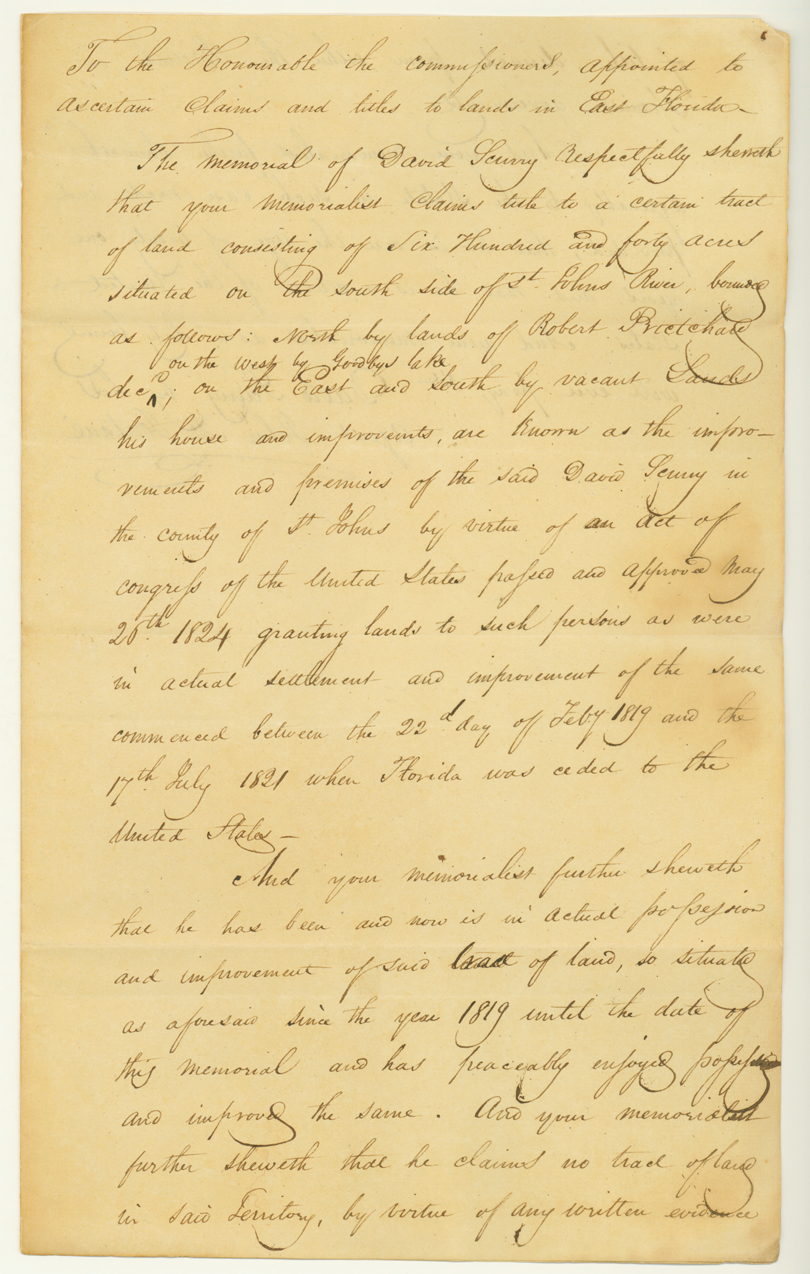 To the Honourable the commissioners, appointed to
ascertain Claims and titles to lands in East Florida—
The memorial of David Scurry Respectfully sheweth
that your memorialist Claims title to a certain tract
of land consisting of Six Hundred and forty acres
situated on the south side of St. Johns River, bounded
as follows: North by lands of Robert Prictchard
on the west by Goodbys lake
decd; on the East and South by vacant Lands
his house and improvents, are Known as the impro—
vements and premises of the said David Scurry in
the county of St. Johns by virtue of an act of
congress of the United States passed and approved May
26th 1824 granting lands to such persons as were
in actual settlement and improvement of the same
commenced between the 22d day of Feby 1819 and the
17th July 1821 when Florida was ceded to the
United States—
And your memorialist further sheweth
that he has been and now is in actual possession
and improvement of said tract of land, so situated
as aforesaid since the year 1819 until the date of
this memorial and has peaceably enjoyed possessed
and improved the same. And your memorialist
further sheweth that he claims no tract of land
in said Territory, by virtue of any written evidence